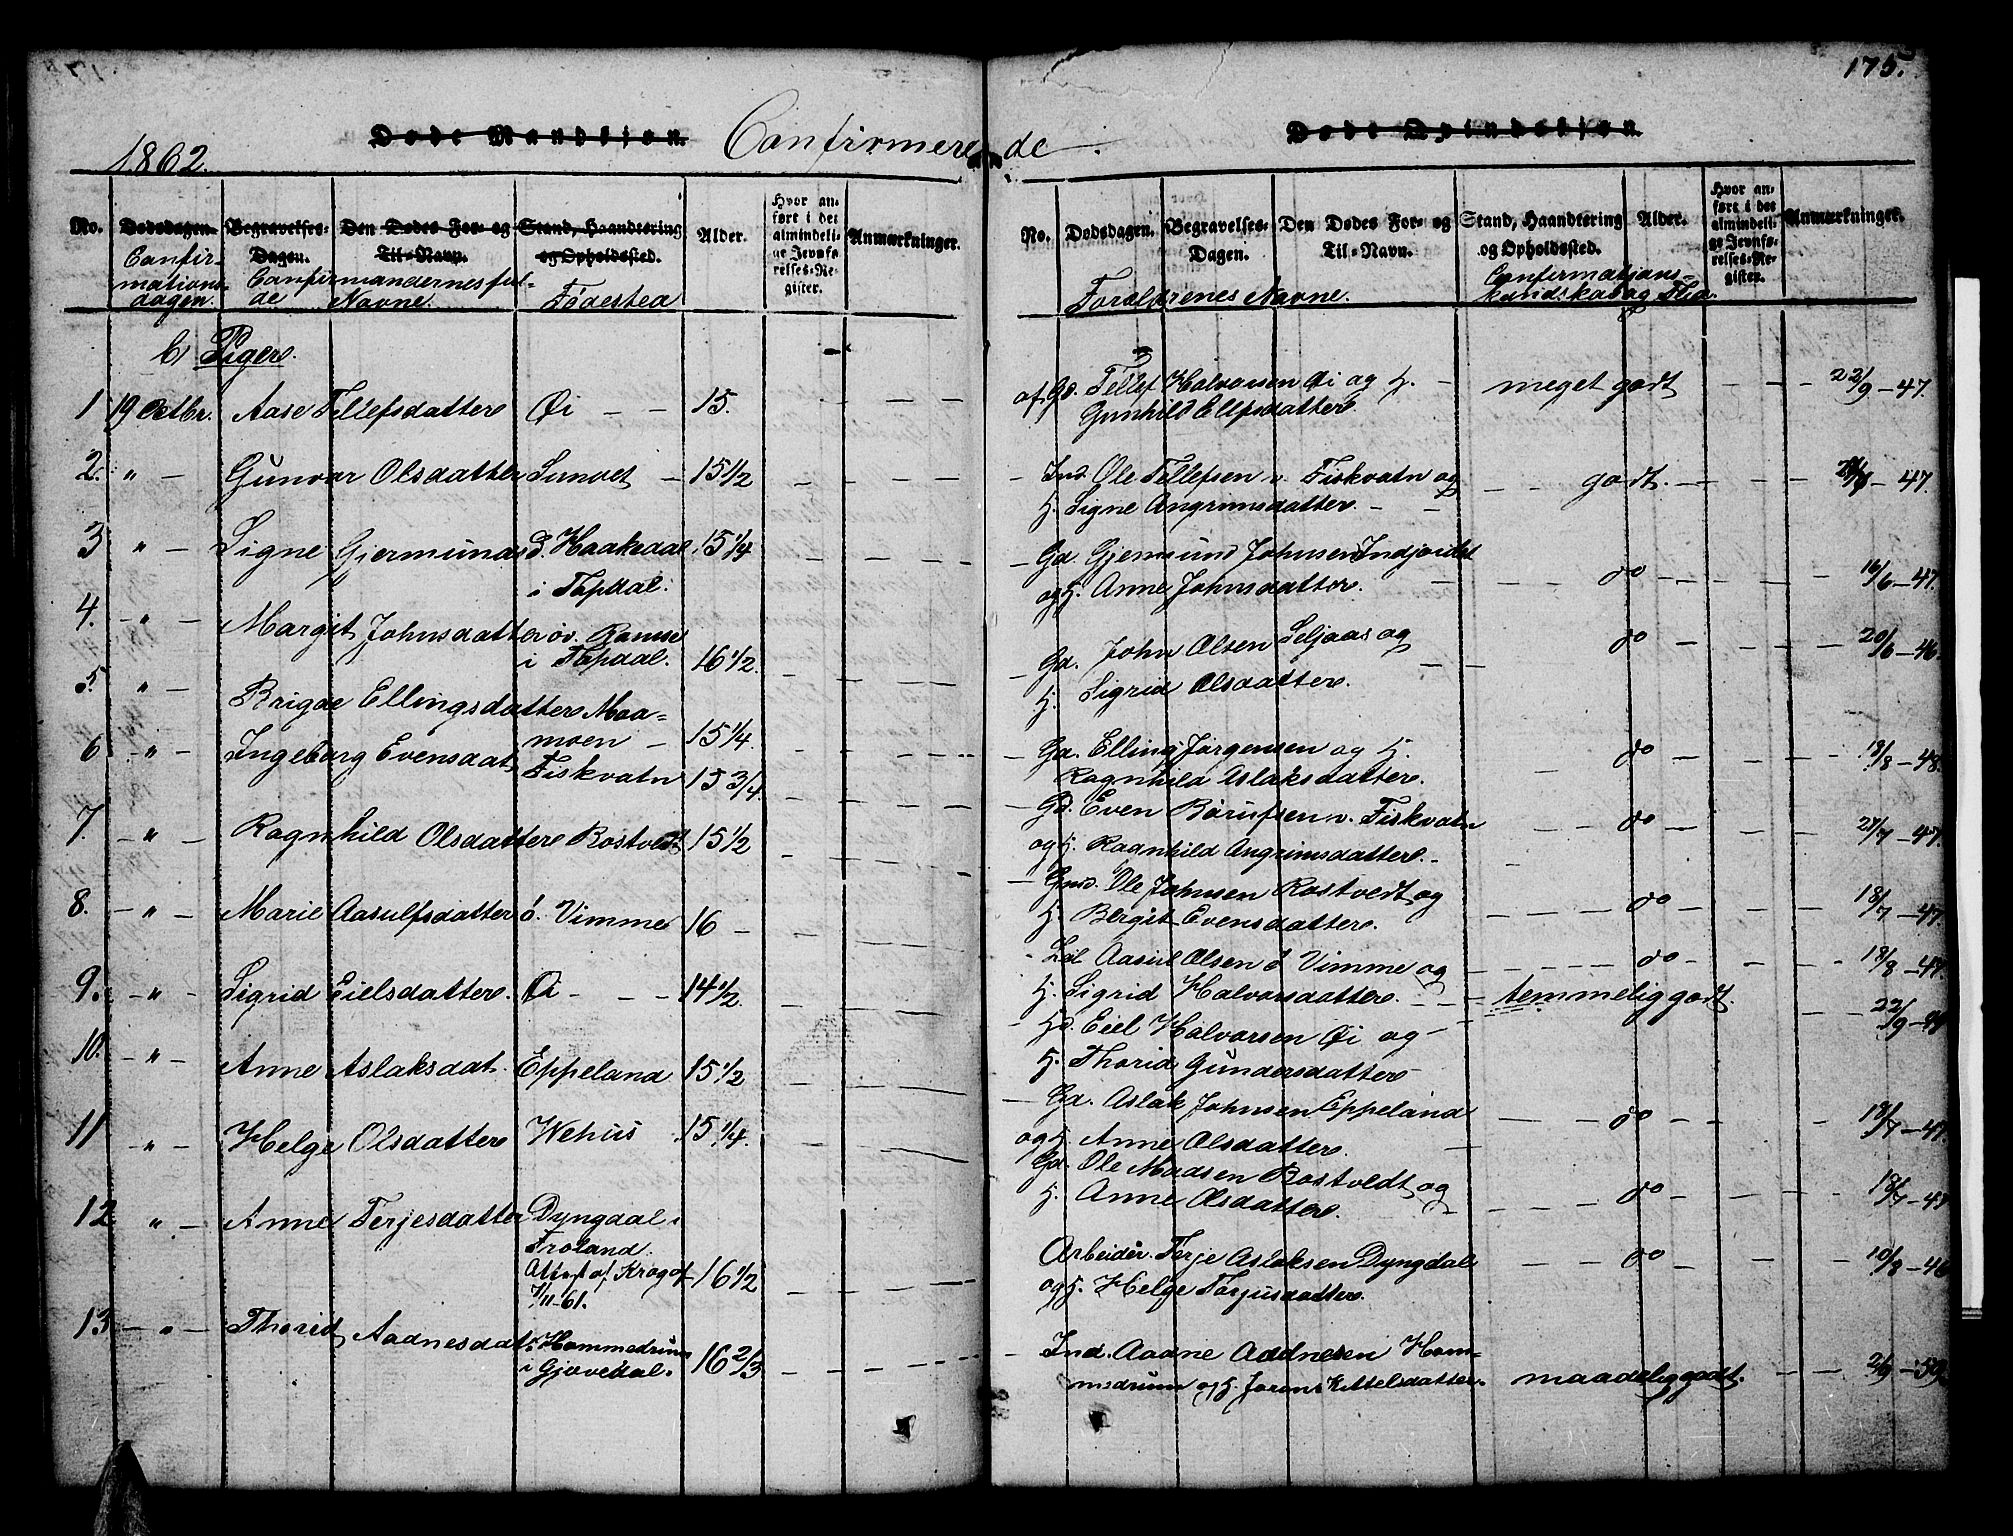 175.
1862.
Døde Mandkjøn.
Confirmerede.
Døde Qvindekjøn.
No.
Dødsdagen.
Begravelses-Dagen.
Den Dødes For- og Til-Navn.
Stand, Haandtering og Opholdssted.
Alder.
Hvor anført i det almindelige Jevnførelses-Register.
Anmærkninger.
Confirmationsdagen.
Confirmandernes fulde Navne.
Fødested
No.
Dødsdagen.
Begravelses-Dagen.
Den Dødes For- og Til-Navn.
Stand, Haandtering og Opholdssted.
Alder.
Hvor anført i det almindelige Jevnførelses-Register.
Anmærkninger.
Forældrenes Navne.
Confirmations-kundskab og Flid.
b) Piger.
1 19 Octbr. Aase Tellefsdatter Øi - - 15.
af Gd. Tellef Halvorsen Øi og H. - meget godt - - - 22/9 - 47.
Gunhild Ellefsdatter
2. " - Gunvor Olsdatter Lunvet - 15 1/2
- Ind. Ole Tellefsen v. Fiskvatn og - - godt. - - 47.
H. Signe Angrimsdatter. - -
3 " - Signe Gjermunds d. Haaksdal 15 1/4
i Topdal.
- Gd. Gjermund Johnsen Indjordet
og H. Anne Johnsdatter. - - - do - - - 16/6 - 47.
4. - " - Margit Johnsdatter öv. Ramse
i Topdal. 16 1/2.
- Gd. John Olsen Seljaas og - - do - - - 20/6 - 46.
H. Sigrid Olsdatter.
5. " - Brigde Ellingsdatter Moa=
moen - 15 1/4.
- Gd. Elling Jørgensen og H. - do - - - 13/8 - 48.
Ragnhild Aslaksdatter.
6 " - Ingeborg Evensdat. Fiskvatn 15 3/4.
- Gd. Even Børufsen v. Fiskvatn - - do - - - 21/7 - 47.
og H. Ragnhild Angrimsdatter. -
7. - " - Ragnhild Olsdatter Rostvedt 15 1/2
- Gmd. Ole Johnsen Rostvedt og
H. Bergit Evensdatter. - - - do - - - 18/7 - 47.
8. - " - Marie Aasulfsdatter ö. Vimme 16 -
- Aasul Olsen ö Vimme og - - do - - - 18/8 - 47.
H. Sigrid Halvorsdatter. - - - temmelig godt.
9. - " - Sigrid Eielsdatter. Øi - - - 14 1/2.
- Gd. Eiel Halvorsen Øi og - - - 22/9
H. Thorid Gundersdatter
10. - " - Anne Aslaksdat. Eppeland 15 1/2
- Gd. Aslak Johnsen Eppeland - - do - - - 18/7 - 47.
og H. Anne Olsdatter.
11 - " - Helge Olsdatter Wehus 15 1/4.
Gd. Ole Madsen Rostvedt og
H. Anne Olsdatter. - - - do - - -
12 " - Anne Terjesdatter Dyngdal i
Froland.
Attest af Krog af 16 1/2
7/11-61.
Arbeider. Terje Aslaksen Dyngdal - - do - - - 10/8 - 46
og H. Helge Tarjusdatter.
13 - " - Thorid Aadnesdat. Hommedrum
i Gjøvedal. 16 2/3
- Ind. Aadne Aadnesen Hom=
medrum og H. Joran Kittelsdatter. maadelig godt. - - 2/9 - 50